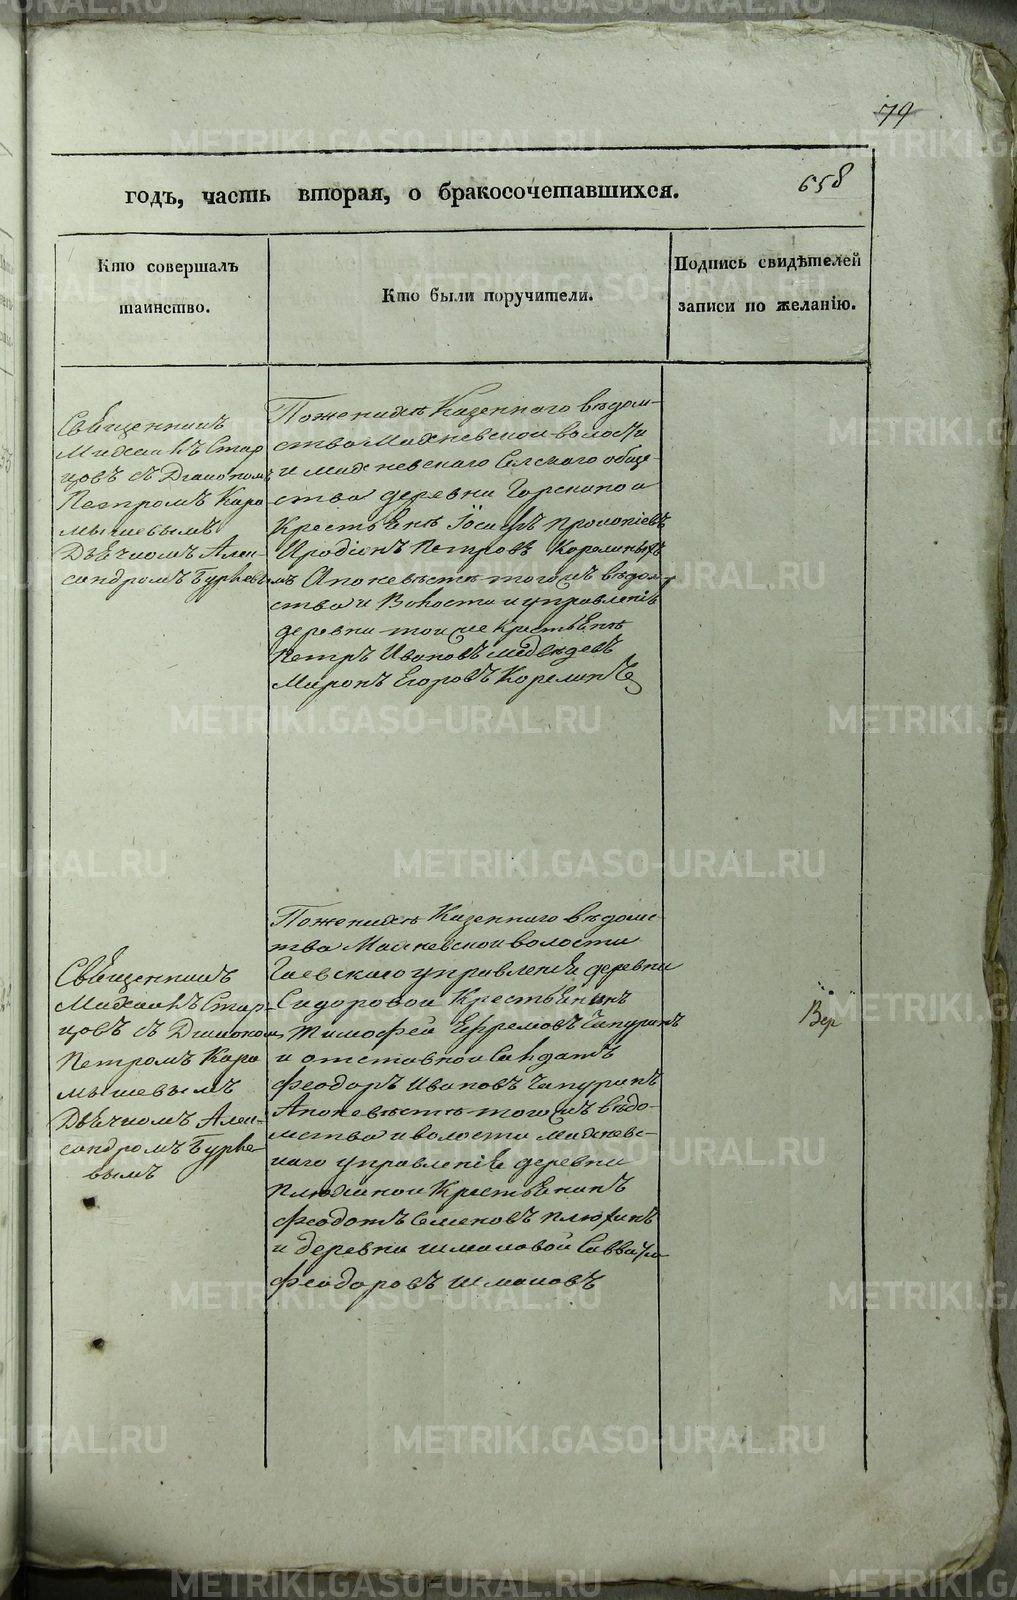 79
658
годъ, часть вторая, о бракосочетавшихся.
Кто совершалъ
таинство.
Кто были поручители.
Подпись свидѣтелей
записи по желанію.
Священникъ
Михаилъ Стар
цовъ съ Діакономъ
Петромъ Кара
мышевымъ
Дьячкомъ Алек-
сандромъ
По женихѣ Казеннаго вѣдом-
ства Махневской волости
и Махневскаго Селскаго обще-
ства деревни Горскиной
Крестьяне Іосифъ Прокопіевъ
Иродіонъ Петровъ Корелины
А по невѣстѣ того жъ вѣдом
ства и Волости и управленія
деревни той же крестьяне
Петръ Ивановъ Медвѣдевъ
Миронъ Егоровъ Корелинъ
Священникъ
Михаилъ Стар-
цовъ съ Діакономъ
Петромъ Кара
мышевымъ
Дьячкомъ Алек-
сандромъ
вымъ
По женихѣ Казеннаго вѣдомс
тва Махневской волости
Гаевскаго управленія деревни
Сидоровой Крестьянинъ
Тимофей Ефремовъ Чапуринъ
и отставной Солдатъ
Феодоръ Ивановъ Чапуринъ
А по невѣстѣ того жъ вѣдо-
мства и волости Махневс-
каго управленія деревни
Плюхиной Крестьянинъ
Феодотъ Семеновъ Плюхинъ
и деревни Шмаковой Савватій
Феодоровъ Шмаковъ
Вер
METRIKI.GASO-URAL.RU